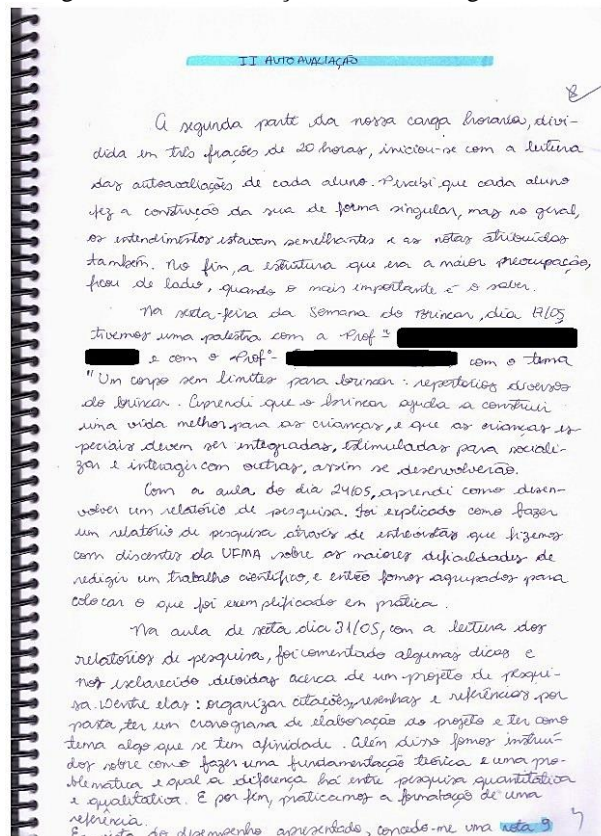 II AUTOAVALIAÇÃO
8
A segunda parte da nossa carga horária, divi-
dida em três frações de 20 horas, iniciou-se com a leitura
das autoavaliações de cada aluno. Percebi que cada aluno
fez a construção da sua de forma singular, mas no geral,
os entendimentos estavam semelhantes e as notas atribuídas
também. No fim, a estrutura que era a maior preocupação,
ficou de lado, quando o mais importante é o saber.
Na sexta-feira da Semana do Brincar, dia 17/05
tivemos uma palestra com a Profª
e com o Profº com o tema
"Um corpo sem limites para brincar: repertórios diversos
do brincar. Aprendi que o brincar ajuda a construir
uma vida melhor para as crianças, e que as crianças es-
peciais devem ser integradas, estimuladas para sociali-
zar e interagir com outras, assim se desenvolverão.
Com a aula do dia 24/05, aprendi como desen-
volver um relatório de pesquisa. Foi explicado como fazer
um relatório de pesquisa através de entrevistas que fizemos
com discentes da UFMA sobre as maiores dificuldades de
redigir um trabalho científico, e então fomos agrupados para
colocar o que foi exemplificado em prática.
Na aula de sexta dia 31/05, com a leitura dos
relatórios de pesquisa, foi comentado algumas dicas e
nos esclarecido dúvidas acerca de um projeto de pesqui-
sa. Dentre elas: organizar citações, resenhas e referências por
pasta, ter um cronograma de elaboração do projeto e ter como
tema algo que se tem afinidade. Além disso fomos instruí-
dos sobre como fazer uma fundamentação teórica e uma pro-
blemática e qual a diferença há entre pesquisa quantitativa
e qualitativa. E por fim, praticamos a formatação de uma
referência.
do desempenho apresentado, concedo-me uma nota 9